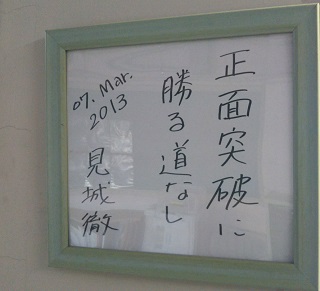 正面突破に
勝る道なし
07. Mar.
2013
見城徹